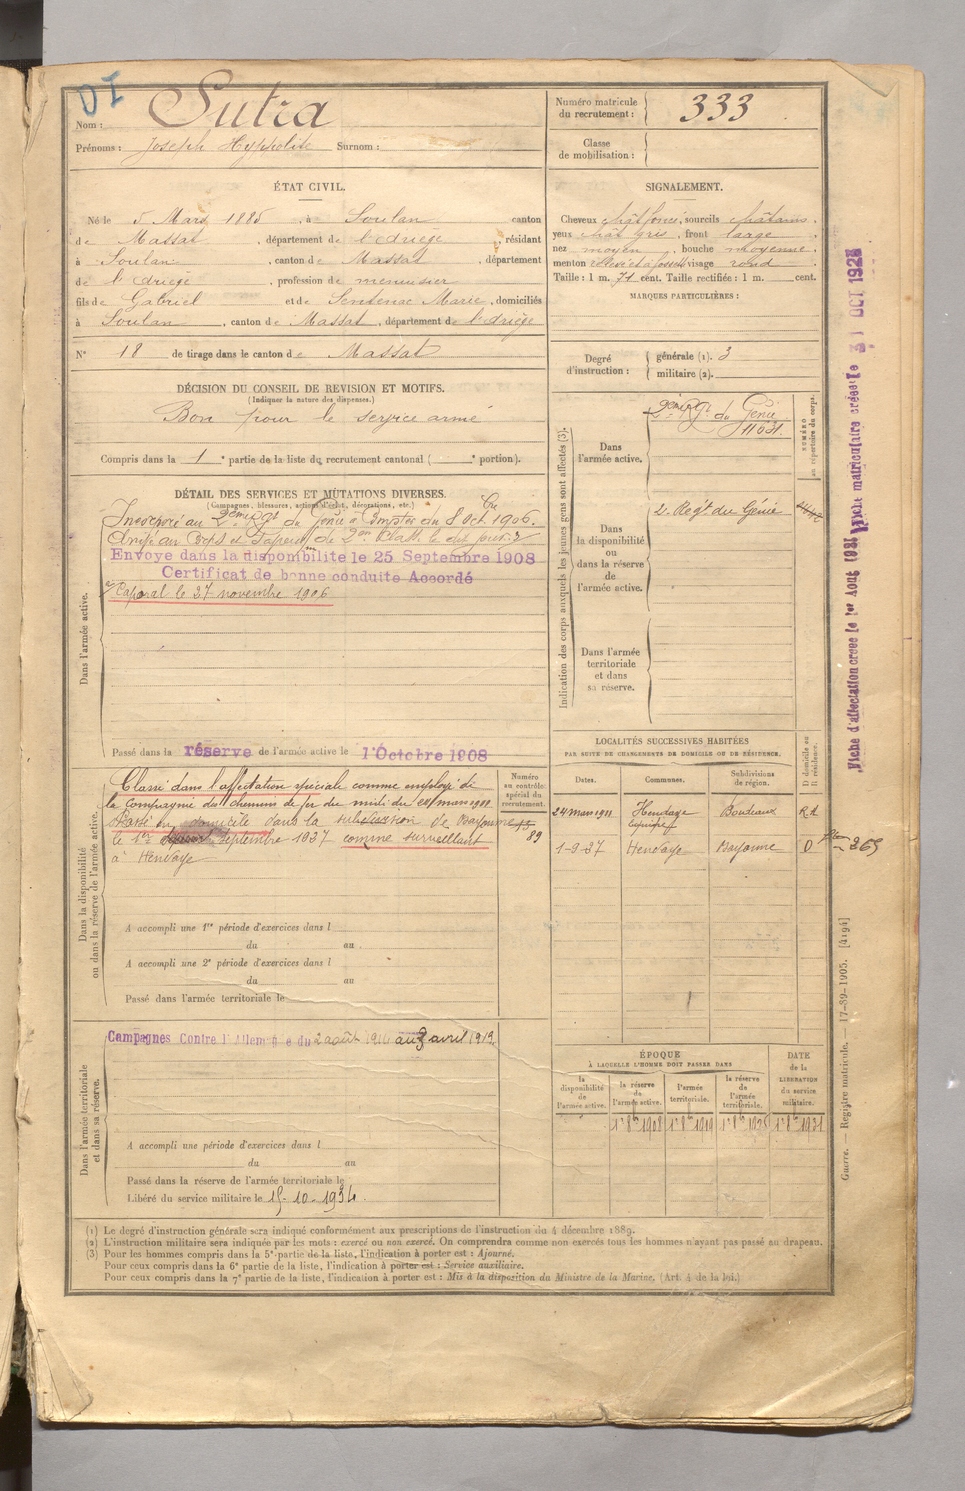 DI
Nom : Sutra
Prénoms : Joseph Hyppolite Surnom :
Numéro matricule du recrutement : 333
Classe de mobilisation :
ÉTAT CIVIL.
Né le 5 Mars 1885, à Soulan canton
de Massat, département de l'Ariège, résidant
à Soulan, canton de Massat, département
de l'Ariège, profession de menuisier
fils de Gabriel et de Sentenac Marie, domiciliés
à Soulan, canton de Massat, département de l'Ariège
N° 18 de tirage dans le canton de Massat
SIGNALEMENT.
Cheveux chât foncé, sourcils châtains.
yeux chât gris, front large.
nez moyen, bouche moyenne.
menton à fossette visage rond.
Taille : 1 m. 71 cent. Taille rectifiée : 1 m. cent.
MARQUES PARTICULIÈRES :
Degré d'instruction :
générale (1). 3
militaire (2).
DÉCISION DU CONSEIL DE REVISION ET MOTIFS.
(Indiquer la nature des dispenses.)
Bon pour le service armé
Compris dans la 1e partie de la liste du recrutement cantonal ( e portion).
DÉTAIL DES SERVICES ET MUTATIONS DIVERSES.
(Campagnes, blessures, actions d'éclat, décorations, etc.)
Incorporé au 2ème Rgt du Génie à Compter du 8 Oct. 1906.
Arrivé au Corps et Sapeur de 2me Classe le dit jour
Envoyé dans la disponibilité le 25 Septembre 1908
Certificat de bonne conduite Accordé
Caporal le 27 novembre 1906
Dans l'armée active.
Passé dans la réserve de l'armée active le 1 Octobre 1908
Indication des corps auxquels les jeunes gens sont affectés (3).
NUMÉRO au répertoire du corps.
Dans l'armée active.
2ème Rgt du Génie
11631
Dans la disponibilité ou dans la réserve de l'armée active.
2e Régt du Génie
Dans l'armée territoriale et dans sa réserve.
Dans la disponibilité ou dans la réserve de l'armée active.
Classé dans l'affectation spéciale comme employé de
la Compagnie des chemins de fer du midi du 24 mars 1911
Passé en domicile dans la subdivision de Bayonne
le 1er septembre 1937 comme surveillant
à Hendaye
Numéro au contrôle spécial du recrutement.
89
A accompli une 1re période d'exercices dans l
du au
A accompli une 2e période d'exercices dans l
du au
Passé dans l'armée territoriale le
LOCALITÉS SUCCESSIVES HABITÉES
PAR SUITE DE CHANGEMENTS DE DOMICILE OU DE RÉSIDENCE.
D domicile ou R résidence.
Dates. Communes. Subdivisions de région.
24 mars 1911 Hendaye Bordeaux R.
1-9-37 Hendaye Bayonne D 369
Dans l'armée territoriale et dans sa réserve.
Campagnes Contre l'Allemagne du 2 août 1914 au 3 avril 1919
A accompli une période d'exercices dans l
du au
Passé dans la réserve de l'armée territoriale le
Libéré du service militaire le 15-10-1934.
ÉPOQUE
À LAQUELLE L'HOMME DOIT PASSER DANS
la disponibilité de l'armée active.
la réserve de l'armée active. 1er 8bre 1908
l'armée territoriale. 1er 8bre 1919
la réserve de l'armée territoriale. 1er 8bre 1925
DATE de la LIBÉRATION du service militaire. 1er 8bre 1931
(1) Le degré d'instruction générale sera indiqué conformément aux prescriptions de l'instruction du 4 décembre 1889.
(2) L'instruction militaire sera indiquée par les mots : exercé ou non exercé. On comprendra comme non exercés tous les hommes n'ayant pas passé au drapeau.
(3) Pour les hommes compris dans la 5e partie de la liste, l'indication à porter est : Ajourné.
Pour ceux compris dans la 6e partie de la liste, l'indication à porter est : Service auxiliaire.
Pour ceux compris dans la 7e partie de la liste, l'indication à porter est : Mis à la disposition du Ministre de la Marine. (Art. 4 de la loi.)
Fiche d'affectation créée le 1er Août 1931
Fiche matriculaire créée le 31 OCT 192
Guerre. — Registre matricule. — 17-39-1905. [4194]